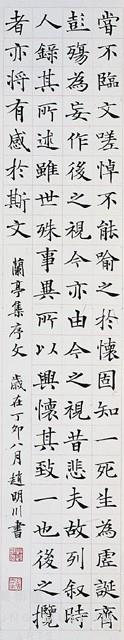 嘗不臨文嗟悼不能喻之於懷固知一死生為虛誕齊
彭殤為妄作後之視今亦由今之視昔悲夫故列敘時
人錄其所述雖世殊事異所以興懷其致一也後之攬
者亦將有感於斯文 蘭亭集序文 歲在丁卯八月趙明川書